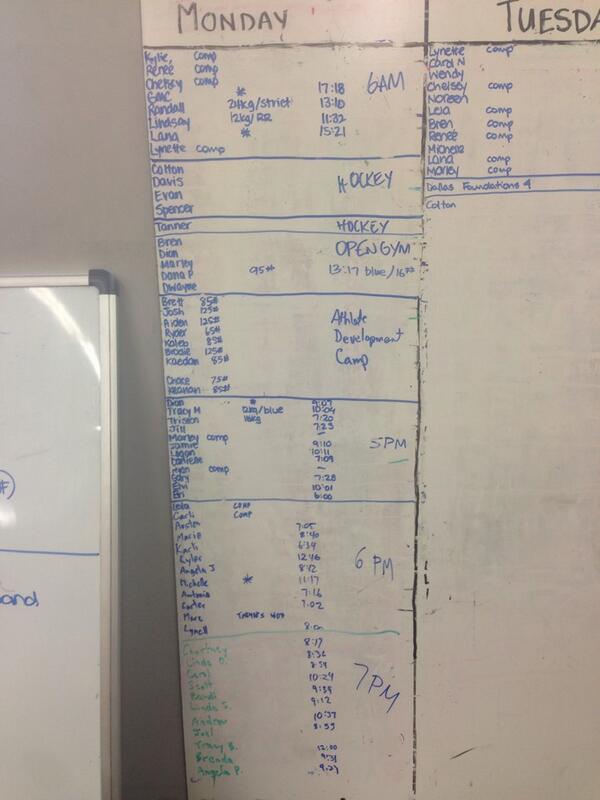 MONDAY
Kylie, comp
Renee comp
Chelsey comp 6AM
GMC * 17:18
Randall 24kg/strict 13:10
Lindsay 12kg/RR 11:32
Lana * 15:21
Lynette comp
Colton
Davis HOCKEY
Evan
Spencer
Tanner HOCKEY
Bren OPEN GYM
Dion
Marley 13:17 blue/16
Dana P 95#
Dwayne
Brett 85#
Josh 125# Athlete
Aiden 125# Development
Ryder 65# Camp
Kaleb 85#
Brodie 125#
Kaedan 85#
Chace 75#
Keanan 85#
Dion * 9:07
Tracy M 12kg/blue 10:04
Tristan 16kg 7:20
Jill 7:23
Marley comp — 5PM
Jamie 9:10
Logan 10:11
Danielle 7:09
Ryan comp —
Gary 7:28
10:01
Bri 6:00
Leila comp
Carli comp
Austen 7:05
Marie 8:40
Karli 6:34
Kyler 12:46 6 PM
Angela J 8:12
Michelle * 11:17
Antonio 7:16
Carter 7:02
Marc
Lynell
Courtney 8:17
Linda D. 8:32
Carol 8:59
Scott 10:24 7PM
9:39
Linda S. 9:12
Andrew 10:37
Joel 8:55
Tracy B. 12:00
Brenda 9:31
Angela P. 9:27
TUESDA
Lynette comp
Carol N
Wendy
Chelsey comp
Noreen
Leia comp
Bren comp
Renee comp
Michele
Lana comp
Marley comp
Dallas Foundations 4
Colton
and